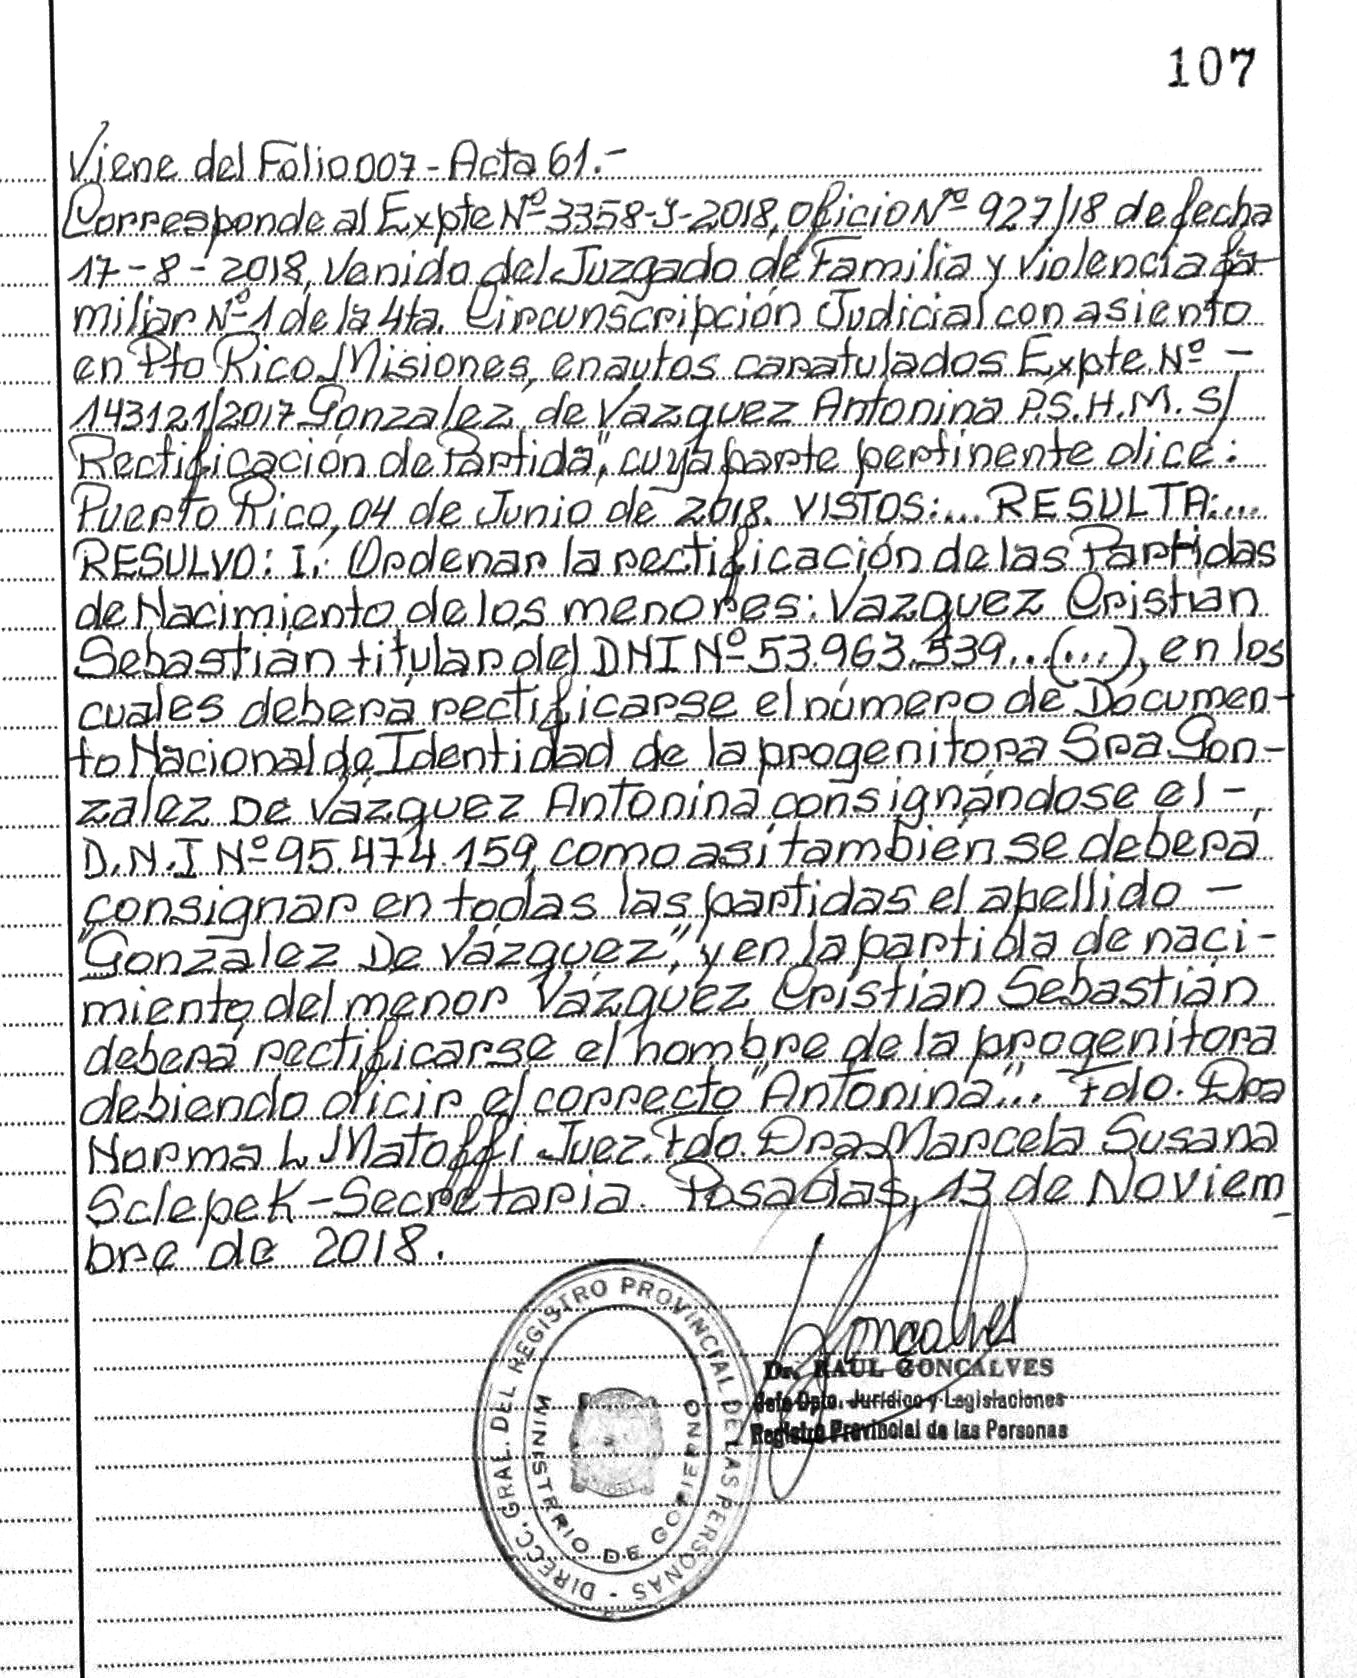 107
Viene del Folio 007 - Acta 61.-
Corresponde al Expte Nº 3358-J-2018, oficio Nº 927/18 de fecha
17-8-2018, Venido del Juzgado de Familia y Violencia fa-
miliar Nº 1 de la 4ta. Circunscripción Judicial con asiento
en Pto Rico, Misiones, en autos caratulados Expte Nº -
143121/2017 Gonzalez de Vazquez Antonina P.S.H.M. S/
Rectificación de Partida", cuya parte pertinente dice:
Puerto Rico, 04 de Junio de 2018. VISTOS:... RESULTA:...
RESULVO: I.- Ordenar la rectificación de las Partidas
de Nacimiento de los menores: Vazquez Cristian
Sebastián titular del DNI Nº 53.963.539...(...), en los
cuales deberá rectificarse el número de Documen-
to Nacional de Identidad de la progenitora Sra Gon-
zalez De Vázquez Antonina consignándose el -
D.N.I Nº 95.474.159, como así también se deberá
consignar en todas las partidas el apellido -
"González De Vázquez", y en la partida de naci-
miento del menor Vázquez Cristian Sebastián
deberá rectificarse el nombre de la progenitora
debiendo dicir el correcto "Antonina"... Fdo. Dra
Norma L. Matoffi Juez. Fdo. Dra Marcela Susana
Sclepek - Secretaria. Posadas, 13 de Noviem
bre de 2018.
Goncalves
Dr. RAUL GONCALVES
Jefe Dpto. Jurídico y Legislaciones
Registro Provincial de las Personas
DIRECC. GRAL. DEL REGISTRO PROVINCIAL DE LAS PERSONAS -
MINISTERIO DE GOBIERNO